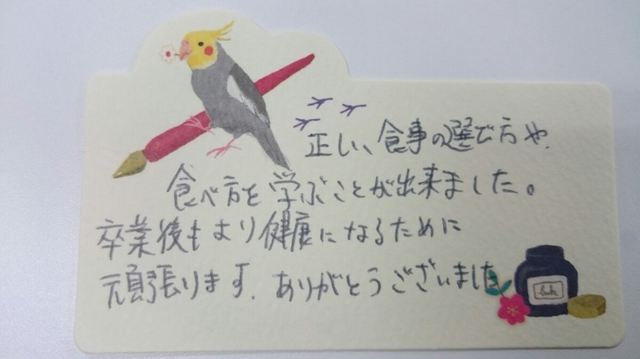 正しい食事の選び方や、
食べ方を学ぶことが出来ました。
卒業後もより健康になるために
頑張ります。ありがとうございました